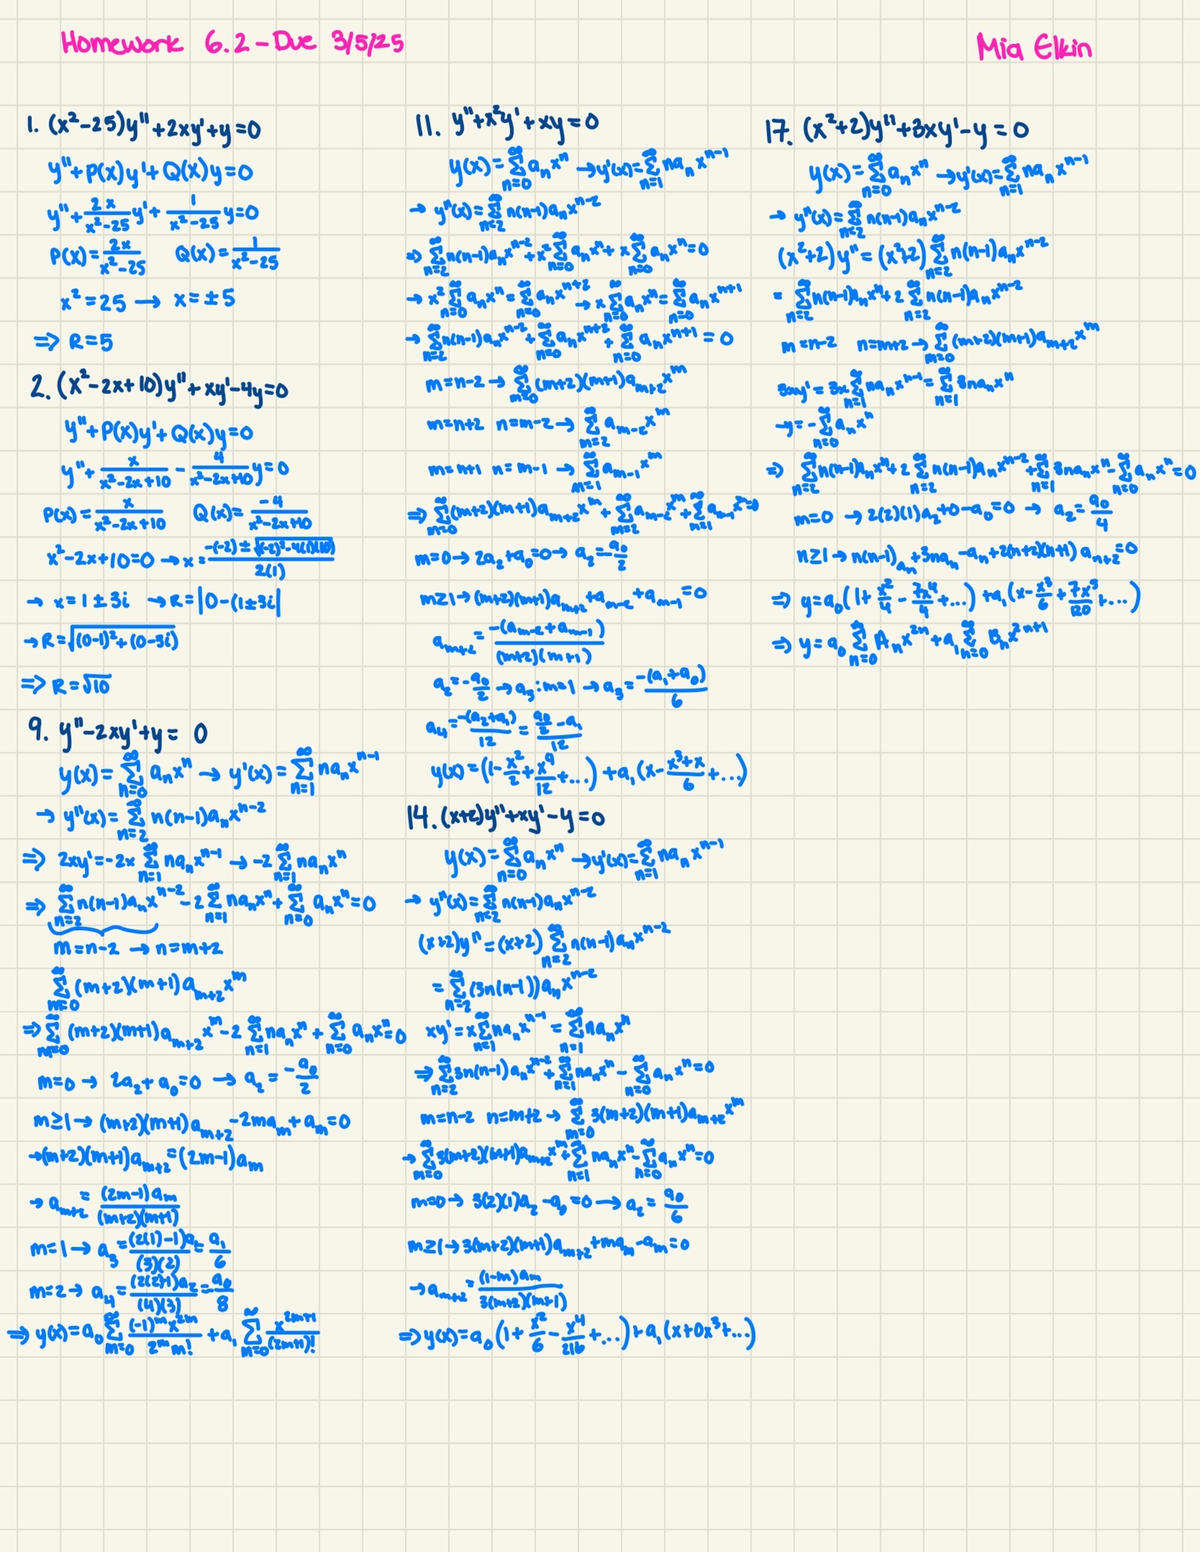 Homework 6.2 - Due 3/5/25
Mia Elkin
1. (x²-25)y''+2xy'+y=0
y''+P(x)y'+Q(x)y=0
y''+\frac{2x}{x²-25}y'+\frac{1}{x²-25}y=0
P(x)=\frac{2x}{x²-25} Q(x)=\frac{1}{x²-25}
x²=25 → x=±5
⇒ R=5
2. (x²-2x+10)y''+xy'-4y=0
y''+P(x)y'+Q(x)y=0
y''+\frac{x}{x²-2x+10}-\frac{4}{x²-2x+10}y=0
P(x)=\frac{x}{x²-2x+10} Q(x)=\frac{-4}{x²-2x+10}
x²-2x+10=0 → x=\frac{-(-2)±\sqrt{(-2)²-4(1)(10)}}{2(1)}
→ x=1±3i → R=|0-(1±3i|
→ R=\sqrt{(0-1)²+(0-3i)}
⇒ R=√10
9. y''-2xy'+y= 0
y(x)=\sum_{n=0}^{∞} a_n x^n → y'(x)=\sum_{n=1}^{∞} na_n x^{n-1}
→ y''(x)=\sum_{n=2}^{∞} n(n-1)a_n x^{n-2}
⇒ 2xy'=-2x\sum_{n=1}^{∞} na_n x^{n-1} → -2\sum_{n=1}^{∞} na_n x^n
⇒ \sum_{n=2}^{∞} n(n-1)a_n x^{n-2}-2\sum_{n=1}^{∞} na_n x^n+\sum_{n=0}^{∞} a_n x^n=0
m=n-2 → n=m+2
\sum_{m=0}^{∞} (m+2)(m+1)a_{m+2}x^m
⇒ \sum_{m=0}^{∞} (m+2)(m+1)a_{m+2}x^m-2\sum_{n=1}^{∞} na_n x^n+\sum_{n=0}^{∞} a_n x^n=0
m=0 → 2a_2+a_0=0 → a_2=-\frac{a_0}{2}
m≥1 → (m+2)(m+1)a_{m+2}-2ma_m+a_m=0
→(m+2)(m+1)a_{m+2}=(2m-1)a_m
→ a_{m+2}=\frac{(2m-1)a_m}{(m+2)(m+1)}
m=1 → a_3=\frac{(2(1)-1)a_1}{(3)(2)}=\frac{a_1}{6}
m=2 → a_4=\frac{(2(2)-1)a_2}{(4)(3)}=-\frac{a_0}{8}
⇒ y(x)=a_0\sum_{m=0}^{∞}\frac{(-1)^m x^{2m}}{2^m m!}+a_1\sum_{m=0}^{∞}\frac{x^{2m+1}}{(2m+1)!}
11. y''+x²y'+xy=0
y(x)=\sum_{n=0}^{∞} a_n x^n → y'(x)=\sum_{n=1}^{∞} na_n x^{n-1}
→ y''(x)=\sum_{n=2}^{∞} n(n-1)a_n x^{n-2}
⇒ \sum_{n=2}^{∞} n(n-1)a_n x^{n-2}+x²\sum_{n=0}^{∞} a_n x^n+x\sum_{n=0}^{∞} a_n x^n=0
→ x²\sum_{n=0}^{∞} a_n x^n=\sum_{n=0}^{∞} a_n x^{n+2} → x\sum_{n=0}^{∞} a_n x^n=\sum_{n=0}^{∞} a_n x^{n+1}
→ \sum_{n=2}^{∞} n(n-1)a_n x^{n-2}+\sum_{n=0}^{∞} a_n x^{n+2}+\sum_{n=0}^{∞} a_n x^{n+1}=0
m=n-2 → \sum_{m=0}^{∞} (m+2)(m+1)a_{m+2}x^m
m=n+2 n=m-2 → \sum_{m=2}^{∞} a_{m-2}x^m
m=n+1 n=m-1 → \sum_{m=1}^{∞} a_{m-1}x^m
⇒ \sum_{m=0}^{∞} (m+2)(m+1)a_{m+2}x^m+\sum_{m=2}^{∞} a_{m-2}x^m+\sum_{n=1}^{∞} a_{n-1}x^n=0
m=0 → 2a_2+a_0=0 → a_2=-\frac{a_0}{2}
m≥1 → (m+2)(m+1)a_{m+2}+a_{m-2}+a_{m-1}=0
a_{m+2}=\frac{-(a_{m-2}+a_{m-1})}{(m+2)(m+1)}
a_2=-\frac{a_0}{2} → a_3: m=1 → a_3=\frac{-(a_1+a_0)}{6}
a_4=\frac{-(a_2+a_1)}{12}=\frac{\frac{a_0}{2}-a_1}{12}
y(x)=(1-\frac{x²}{2}+\frac{x^4}{12}+...)+a_1(x-\frac{x³+x}{6}+...)
14. (x+2)y''+xy'-y=0
y(x)=\sum_{n=0}^{∞} a_n x^n → y'(x)=\sum_{n=1}^{∞} na_n x^{n-1}
→ y''(x)=\sum_{n=2}^{∞} n(n-1)a_n x^{n-2}
(x+2)y''=(x+2)\sum_{n=2}^{∞} n(n-1)a_n x^{n-2}
=\sum_{n=2}^{∞} (3n(n-1))a_n x^{n-2}
xy'=x\sum_{n=1}^{∞} na_n x^{n-1}=\sum_{n=1}^{∞} na_n x^n
⇒ \sum_{n=2}^{∞} 3n(n-1)a_n x^{n-2}+\sum_{n=1}^{∞} na_n x^n-\sum_{n=0}^{∞} a_n x^n=0
m=n-2 n=m+2 → \sum_{m=0}^{∞} 3(m+2)(m+1)a_{m+2}x^m
→ \sum_{m=0}^{∞} 3(m+2)(m+1)a_{m+2}x^m+\sum_{n=1}^{∞} na_n x^n-\sum_{n=0}^{∞} a_n x^n=0
m=0 → 3(2)(1)a_2-a_0=0 → a_2=\frac{a_0}{6}
m≥1 → 3(m+2)(m+1)a_{m+2}+ma_m-a_m=0
→ a_{m+2}=\frac{(1-m)a_m}{3(m+2)(m+1)}
⇒ y(x)=a_0(1+\frac{x²}{6}-\frac{x^4}{216}+...)+a_1(x+0x³+...)
17. (x²+2)y''+3xy'-y=0
y(x)=\sum_{n=0}^{∞} a_n x^n → y'(x)=\sum_{n=1}^{∞} na_n x^{n-1}
→ y''(x)=\sum_{n=2}^{∞} n(n-1)a_n x^{n-2}
(x²+2)y''=(x²+2)\sum_{n=2}^{∞} n(n-1)a_n x^{n-2}
=\sum_{n=2}^{∞} n(n-1)a_n x^n+2\sum_{n=2}^{∞} n(n-1)a_n x^{n-2}
m=n-2 n=m+2 → \sum_{m=0}^{∞} (m+2)(m+1)a_{m+2}x^m
3xy'=3x\sum_{n=1}^{∞} na_n x^{n-1}=\sum_{n=1}^{∞} 3na_n x^n
-y=-\sum_{n=0}^{∞} a_n x^n
⇒ \sum_{n=2}^{∞} n(n-1)a_n x^n+2\sum_{n=2}^{∞} n(n-1)a_n x^{n-2}+\sum_{n=1}^{∞} 3na_n x^n-\sum_{n=0}^{∞} a_n x^n=0
m=0 → 2(2)(1)a_2+0-a_0=0 → a_2=\frac{a_0}{4}
n≥1 → n(n-1)a_n+3na_n-a_n+2(n+2)(n+1)a_{n+2}=0
⇒ y=a_0(1+\frac{x²}{4}-\frac{7x^4}{4}+...)+a_1(x-\frac{x³}{6}+\frac{7x^5}{120}+...)
⇒ y=a_0\sum_{n=0}^{∞} A_n x^{2n}+a_1\sum_{n=0}^{∞} B_n x^{2n+1}